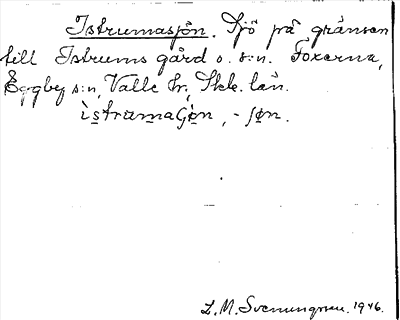 Istrumasjön. Sjö på gränsen
till Istrums gård o. s:n. Foxerna,
Eggby s:n, Valle hr, Skbg. län.
L. M. Svenungsson. 1946.